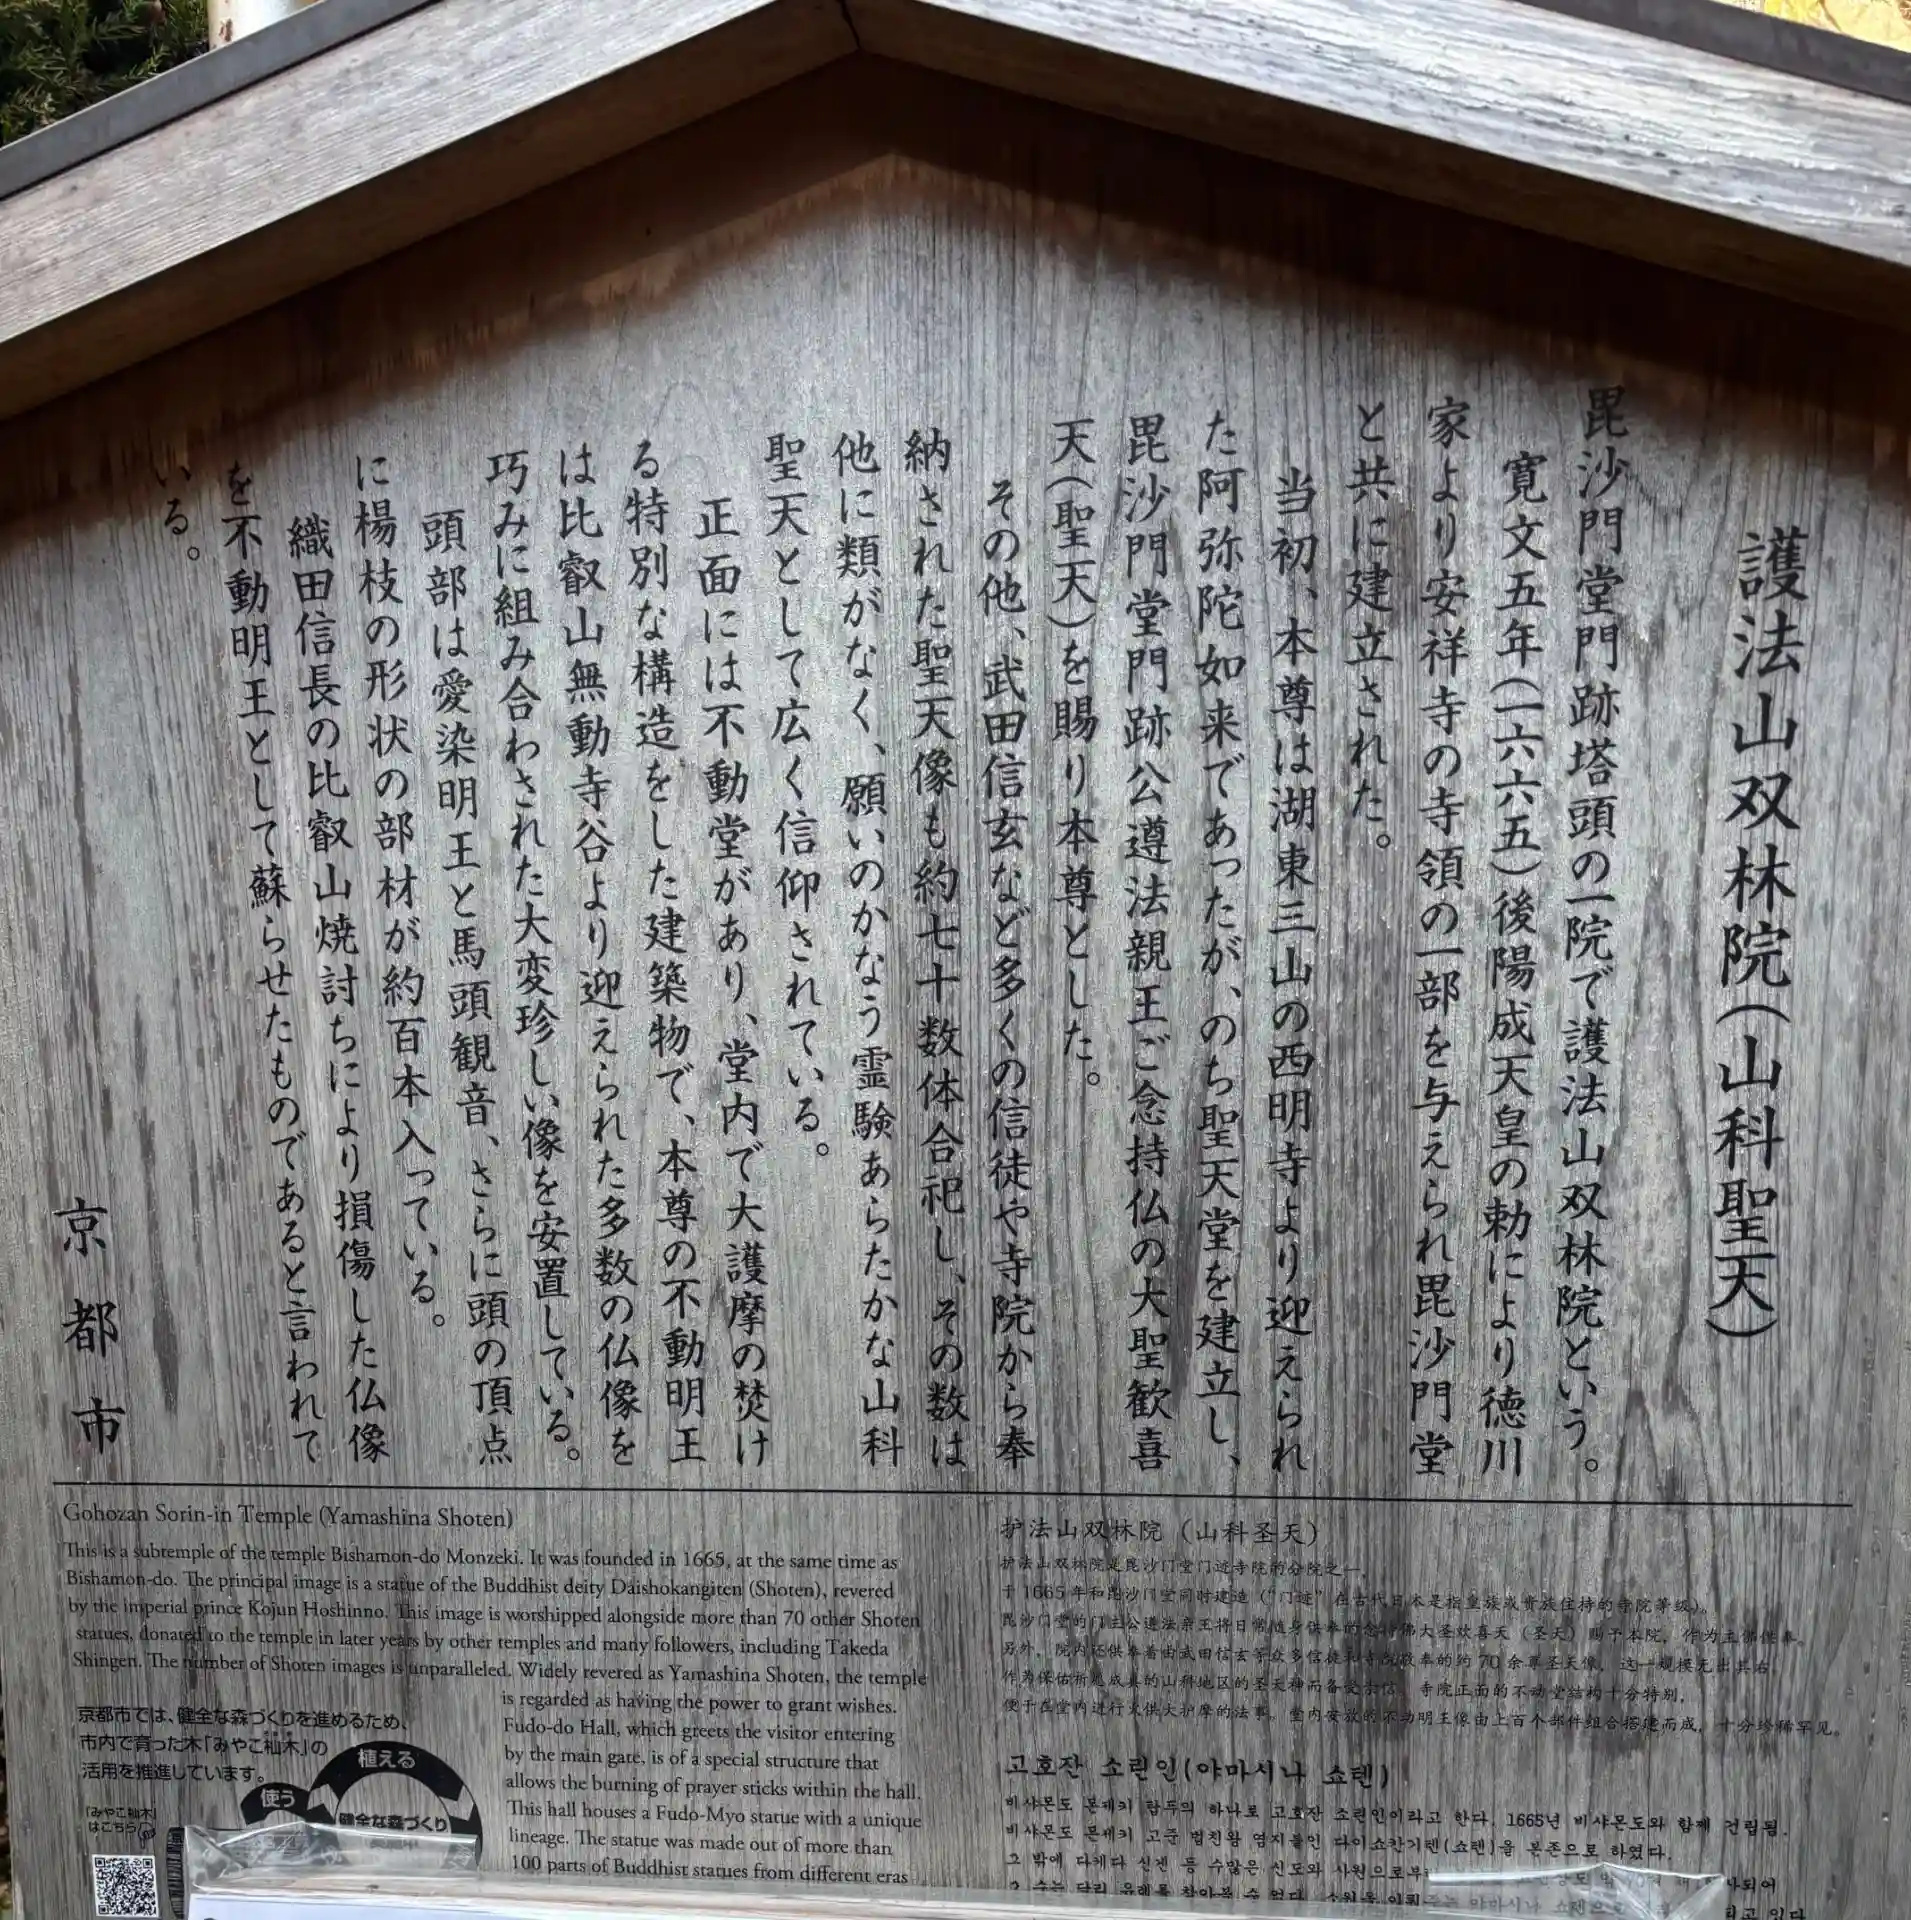 護法山双林院(山科聖天)
毘沙門堂門跡塔頭の一院で護法山双林院という。
寛文五年(一六六五)後陽成天皇の勅により徳川
家より安祥寺の寺領の一部を与えられ毘沙門堂
と共に建立された。
当初、本尊は湖東三山の西明寺より迎えられ
た阿弥陀如来であったが、のち聖天堂を建立し、
毘沙門堂門跡公遵法親王ご念持仏の大聖歓喜
天(聖天)を賜り本尊とした。
その他、武田信玄など多くの信徒や寺院から奉
納された聖天像も約七十数体合祀し、その数は
他に類がなく、願いのかなう霊験あらたかな山科
聖天として広く信仰されている。
正面には不動堂があり、堂内で大護摩の焚け
る特別な構造をした建築物で、本尊の不動明王
は比叡山無動寺谷より迎えられた多数の仏像を
巧みに組み合わされた大変珍しい像を安置している。
頭部は愛染明王と馬頭観音、さらに頭の頂点
に楊枝の形状の部材が約百本入っている。
織田信長の比叡山焼討ちにより損傷した仏像
を不動明王として蘇らせたものであると言われて
いる。
京都市
Gohozan Sorin-in Temple (Yamashina Shoten)
This is a subtemple of the temple Bishamon-do Monzeki. It was founded in 1665, at the same time as
Bishamon-do. The principal image is a statue of the Buddhist deity Daishokangiten (Shoten), revered
by the imperial prince Kojun Hoshinno. This image is worshipped alongside more than 70 other Shoten
statues, donated to the temple in later years by other temples and many followers, including Takeda
Shingen. The number of Shoten images is unparalleled. Widely revered as Yamashina Shoten, the temple
is regarded as having the power to grant wishes.
Fudo-do Hall, which greets the visitor entering
by the main gate, is of a special structure that
allows the burning of prayer sticks within the hall.
This hall houses a Fudo-Myo statue with a unique
lineage. The statue was made out of more than
100 parts of Buddhist statues from different eras
京都市では、健全な森づくりを進めるため、
市内で育った木「みやこ杣木」の
活用を推進しています。
植える
使う
健全な森づくり
「みやこ杣木」
はこちら
护法山双林院（山科圣天）
护法山双林院是毘沙门堂门迹寺院的分院之一，
于 1665 年和毘沙门堂同时建造（“门迹”在古代日本是指皇族或贵族住持的寺院等级）。
毘沙门堂的门主公遵法亲王将日常随身供奉的念持佛大圣欢喜天（圣天）赐予本院，作为主佛供奉。
另外，院内还供奉着由武田信玄等众多信徒和寺院敬奉的约 70 余尊圣天像，这一规模无出其右，
作为保佑祈愿成真的山科地区的圣天神而备受崇信。寺院正面的不动堂结构十分特别，
便于在堂内进行火供大护摩的法事。堂内安放的不动明王像由上百个部件组合搭建而成，十分珍稀罕见。
고호잔 소린인(야마시나 쇼텐)
비샤몬도 몬제키 탑두의 하나로 고호잔 소린인이라고 한다. 1665년 비샤몬도와 함께 건립됨.
비샤몬도 몬제키 고준 법친왕 염지불인 다이쇼칸기텐(쇼텐)을 본존으로 하였다.
그 밖에 다케다 신겐 등 수많은 신도와 사원으로부